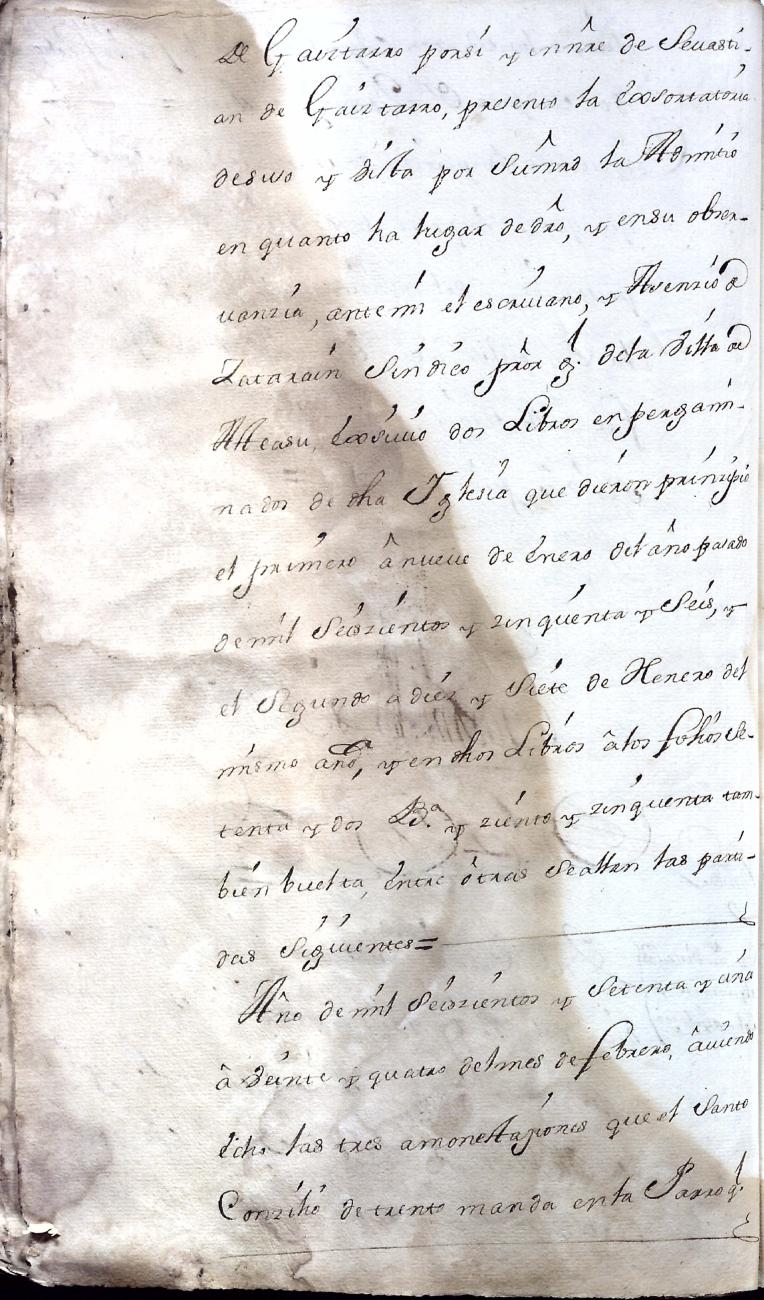 de Gaiztarro porsi y en nr̃e de Sevasti-
an de Gaiztarro, presento la Exsortatoria
desuso y vista por Sum̃rd la Admitio
en quanto ha lugar dedr̃o, y ensu obser-
vanzia, antemi el escrivano, y Asenzio de
Zatarain Sindico pr̃or gl. dela villa de
Aleasu, Exsivio dos Libros enpergami-
nados de dha Iglesia que dieron prinzipio
el primero â nueve de Enero del año pasado
demil Seiszientos y zinquenta y Seis, y
el Segundo a diez y Siete de Henero del
mismo año, y en dhos Libros âlos folios se-
tenta y dos B.a y ziento y zinquenta tam-
bien buelta, entre ôtras Seallan las parti-
das Siguientes=
Año demil Seiszientos y Setenta y una
â veinte y quatro delmes defebrero, âviendo
écho las tres amonestaziones que el Santo
Conzilio detrento manda enla Parroql.